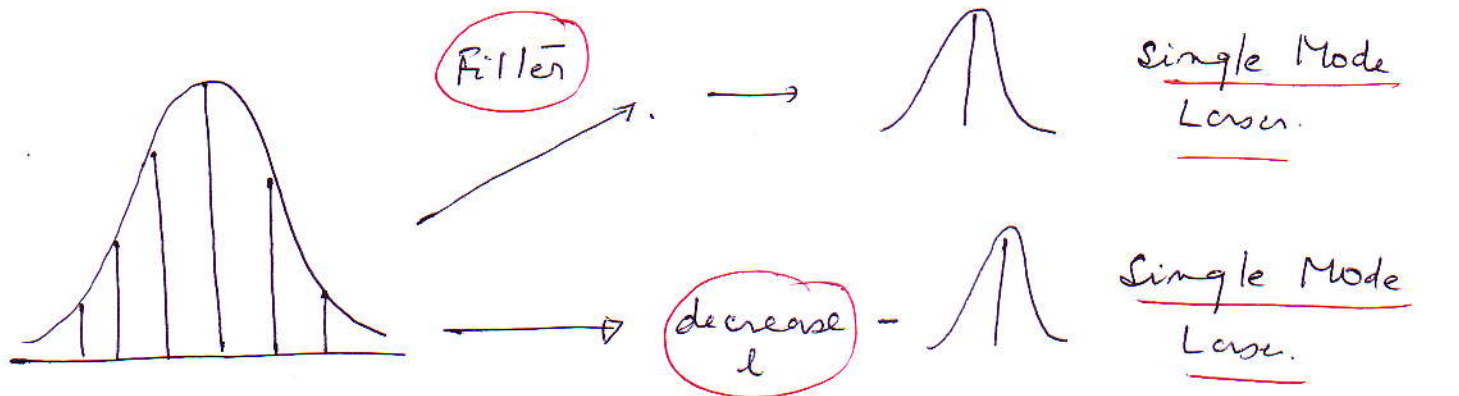 Filter
Single Mode
Laser.
decrease
l
Single Mode
Laser.